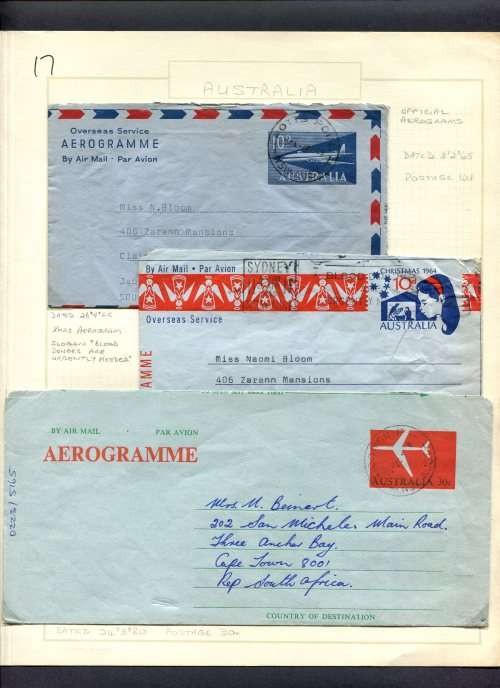 17
AUSTRALIA
OFFICIAL
AEROGRAMS
DATED 8°2°65
POSTAGE 10d
Overseas Service
AEROGRAMME
By Air Mail · Par Avion
10D
AUSTRALIA
Miss N.Bloom
406 Zarann Mansions
By Air Mail · Par Avion
SYDNEY
CHRISTMAS 1964
10D
AUSTRALIA
Overseas Service
Miss Naomi Bloom
406 Zarann Mansions
DATED 28°4°65
XMAS AEROGRAM
SLOGAN "BLOOD
DONORS ARE
URGENTLY NEEDED"
BY AIR MAIL PAR AVION
AEROGRAMME
AUSTRALIA 30c
Mrs. M. Beinart.
202 San Michele, Main Road.
Three Anchor Bay.
Cape Town 8001
Rep South Africa.
COUNTRY OF DESTINATION
5915/2220
DATED 24°3°80 POSTAGE 30c